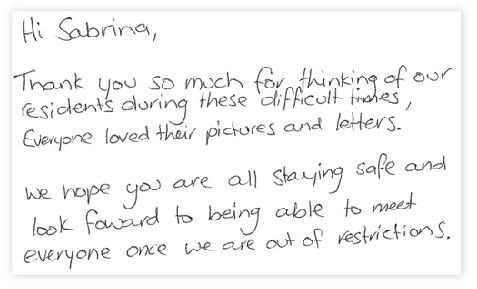 Hi Sabrina,
Thank you so much for thinking of our
residents during these difficult times,
Everyone loved their pictures and letters.
We hope you are all staying safe and
look foward to being able to meet
everyone once we are out of restrictions.